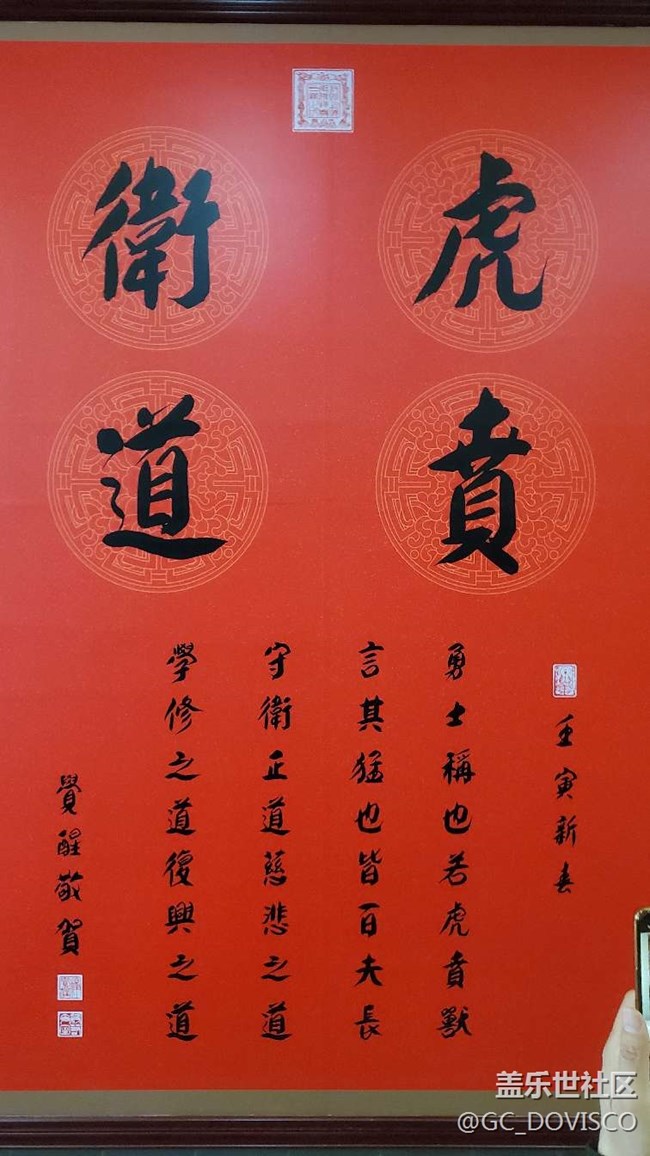 虎賁
衛道
壬寅新春
勇士稱也若虎賁獸
言其猛也皆百夫長
守衛正道慈悲之道
學修之道復興之道
覺醒敬賀
盖乐世社区
@GC_DOVISCO